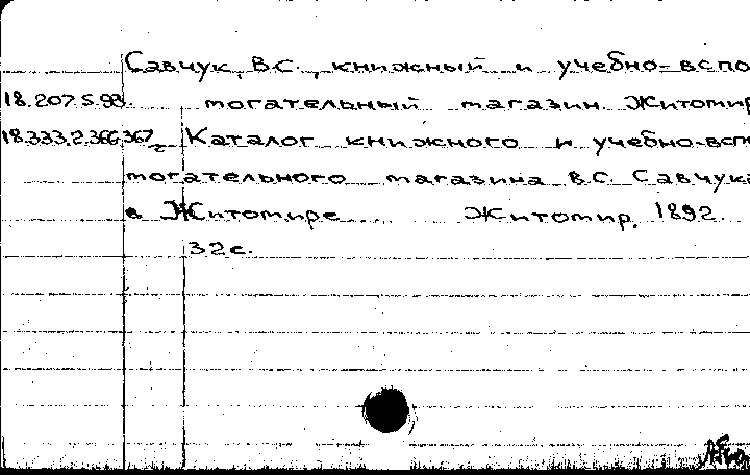 Савчук, В.С., книжный и учебно-вспо
18.207.5.93. могательный магазин. Житомир
18.333.2.366,367 Каталог книжного и учебно-всп
могательного магазина В.С. Савчука
в Житомире... Житомир, 1892.
32 с.